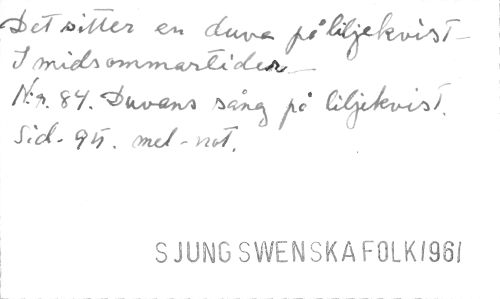 Det sitter en duva på liljekvist-
I midsommartider-
N:r. 84. Duvans sång på liljekvist.
Sid. 95. mel-not.
SJUNG SWENSKA FOLK 1961